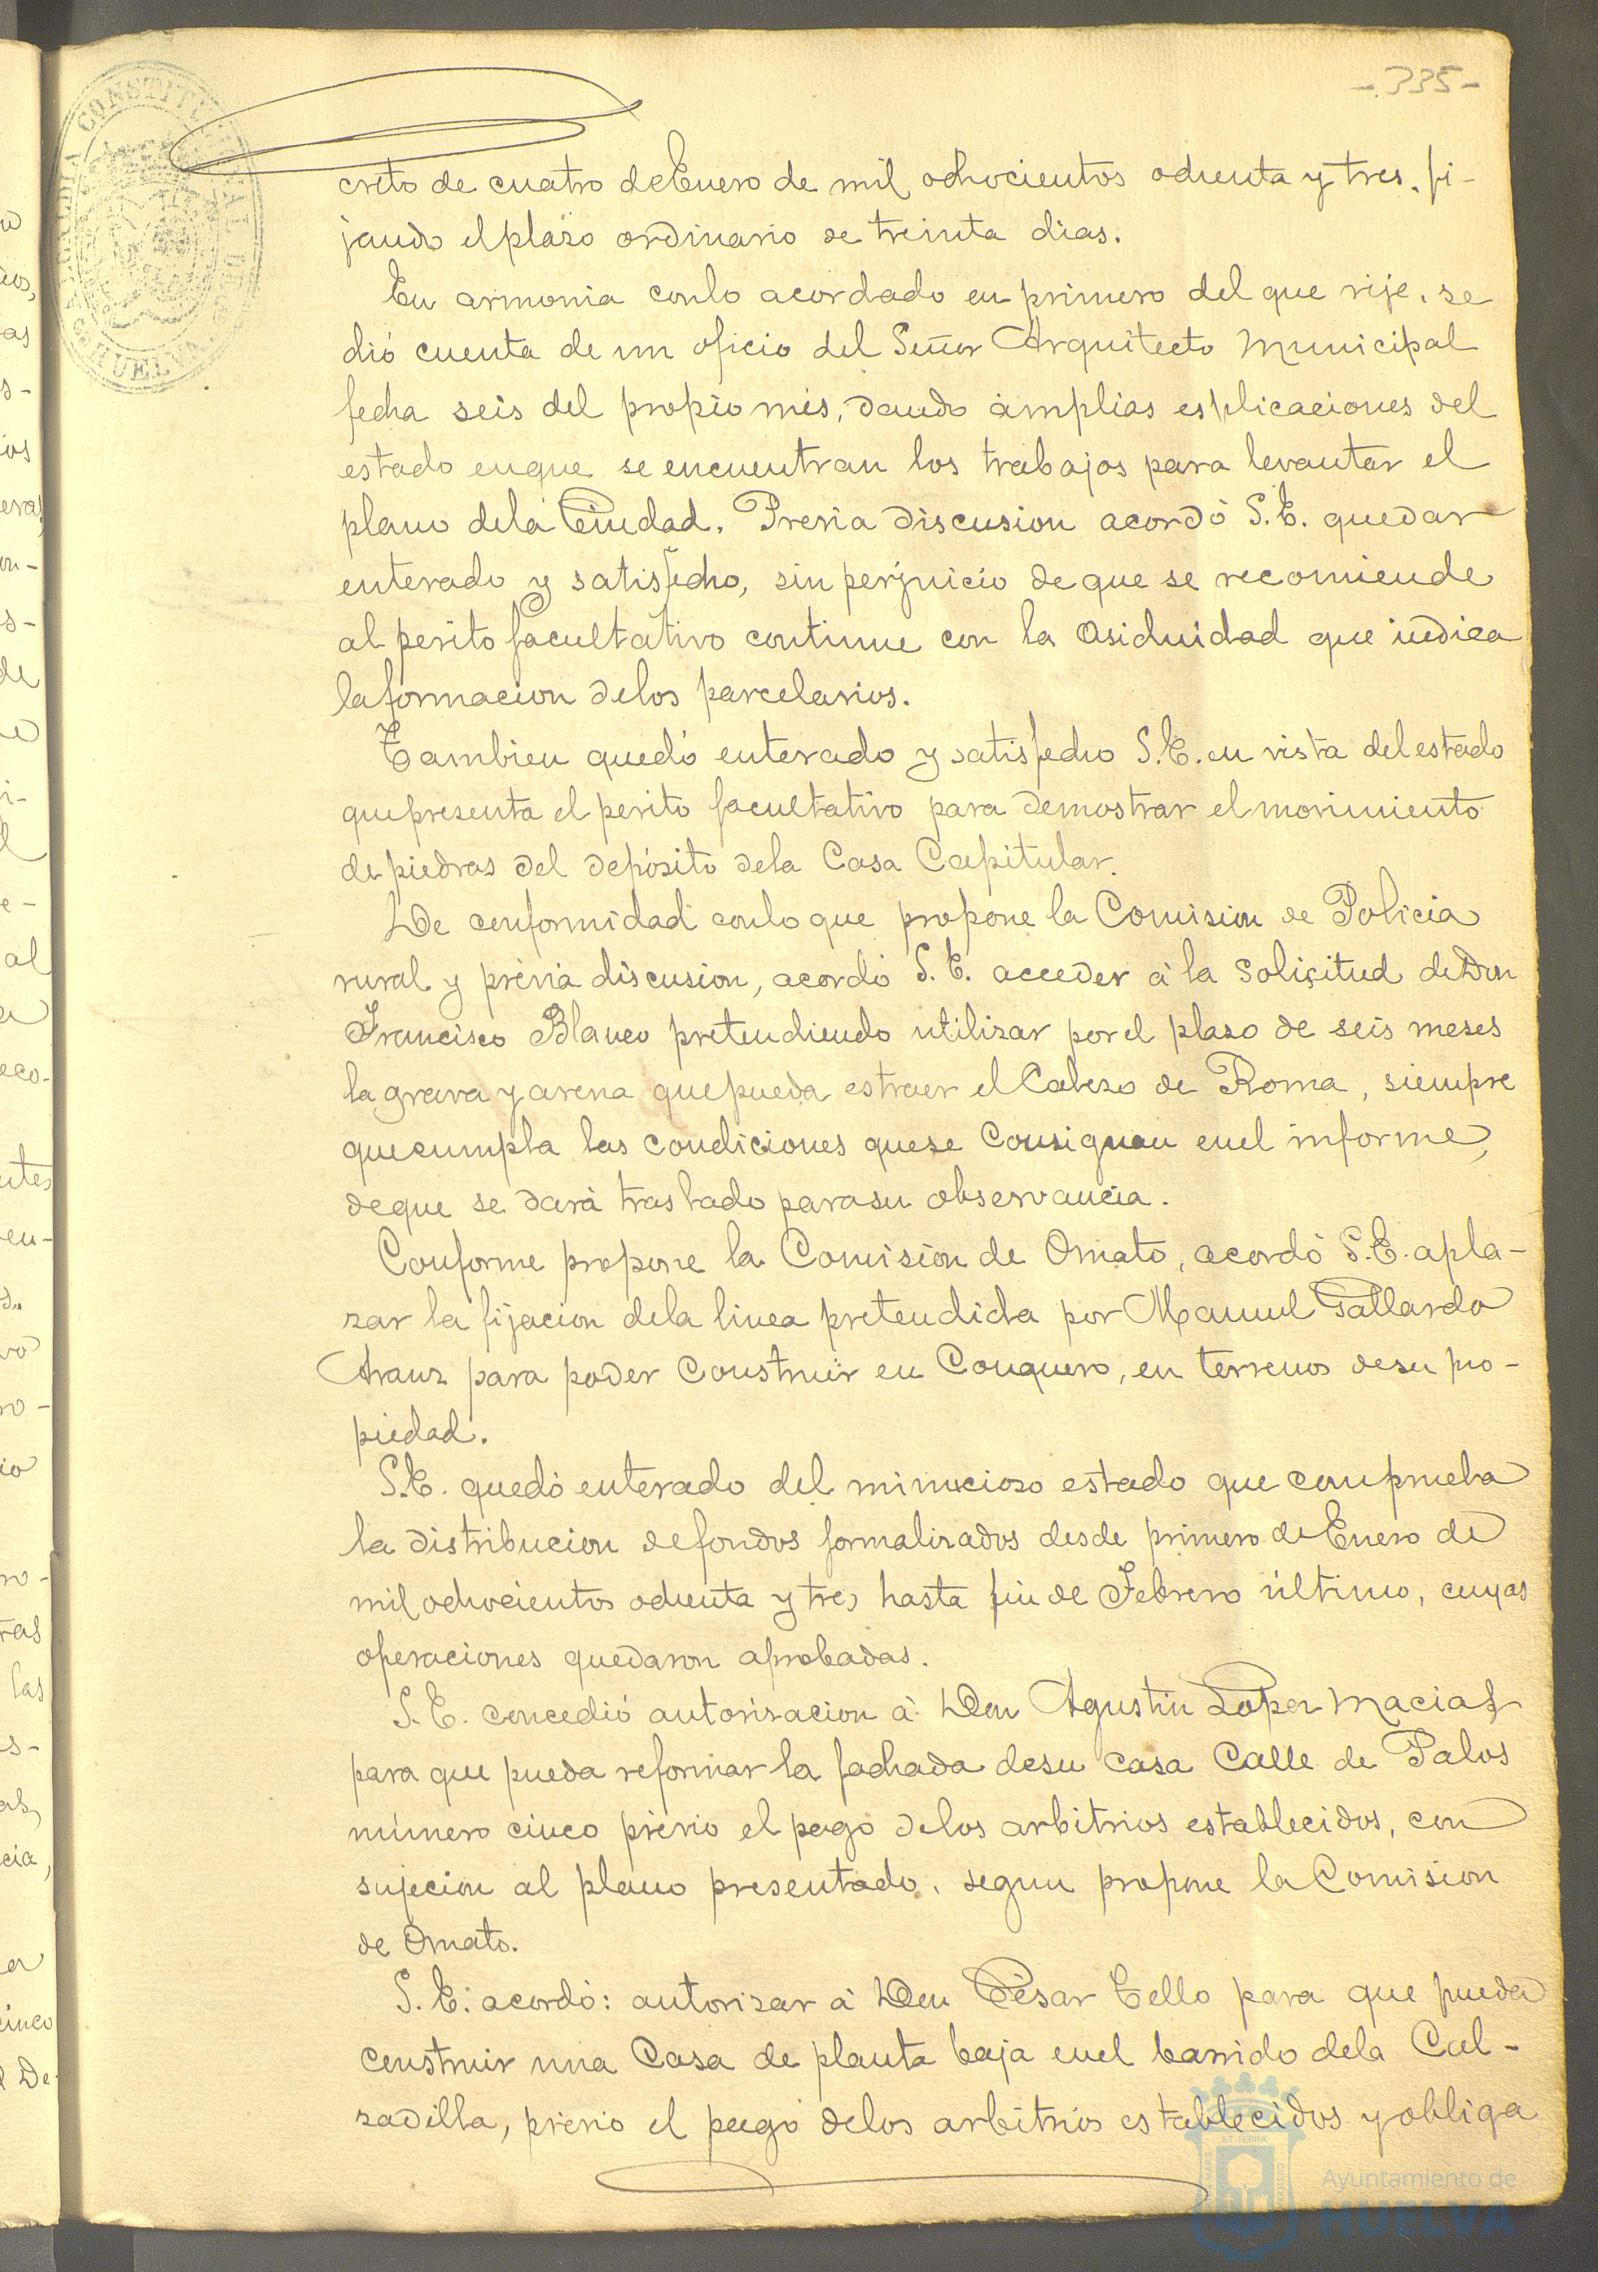 -335-
ALCALDIA CONSTITUCIONAL DE HUELVA
creto de cuatro de Enero de mil ochocientos ochenta y tres, fi-
jando el plazo ordinario de treinta dias.
En armonia con lo acordado en primero del que rije, se
dió cuenta de un oficio del Señor Arquitecto Municipal
fecha seis del propio mes, dando àmplias esplicaciones del
estado en que se encuentran los trabajos para levantar el
plano de la Ciudad. Previa discusion acordó S.E. quedar
enterado y satisfecho, sin perjuicio de que se recomiende
al perito facultativo continue con la asiduidad que indica
la formacion de los parcelarios.
Tambien quedó enterado y satisfecho S.E. en vista del estado
que presenta el perito facultativo para demostrar el movimiento
de piedras del depósito de la Casa Capitular.
De conformidad con lo que propone la Comision de Policia
rural y prévia discusion, acordó S.E. acceder à la solicitud de Don
Francisco Blanco pretendiendo utilizar por el plazo de seis meses
la grava y arena que pueda estraer el Cabezo de Roma, siempre
que cumpla las condiciones que se consignan en el informe,
de que se dará traslado para su observancia.
Conforme propone la Comisión de Ornato, acordó S.E. apla-
zar la fijacion de la linea pretendida por Manuel Gallardo
Aranz para poder construir en Conquero, en terrenos de su pro-
piedad.
S.E. quedó enterado del minucioso estado que comprueba
la distribucion de fondos formalizados desde primero de Enero de
mil ochocientos ochenta y tres hasta fin de Febrero último, cuyas
operaciones quedaron aprobadas.
S.E. concedió autorizacion à Don Agustin Lopez Macias
para que pueda reformar la fachada de su casa Calle de Palos
número cinco prévio el pago de los arbitrios establecidos, con
sujecion al plano presentado, segun propone la Comision
de Ornato.
S.E. acordó: autorizar à Don César Tello para que pueda
construir una Casa de planta baja en el barrido de la Cal-
zadilla, prévio el pago de los arbitrios establecidos y obliga
Ayuntamiento de
HUELVA